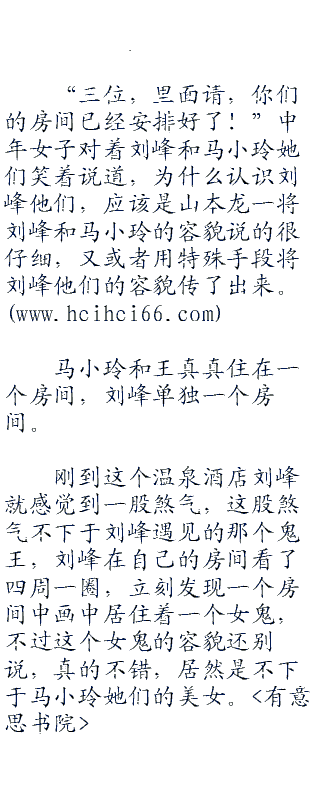 “三位，里面请，你们
的房间已经安排好了！”中
年女子对着刘峰和马小玲她
们笑着说道，为什么认识刘
峰他们，应该是山本龙一将
刘峰和马小玲的容貌说的很
仔细，又或者用特殊手段将
刘峰他们的容貌传了出来。
(www.hcihci66.com)
马小玲和王真真住在一
个房间，刘峰单独一个房
间。
刚到这个温泉酒店刘峰
就感觉到一股煞气，这股煞
气不下于刘峰遇见的那个鬼
王，刘峰在自己的房间看了
四周一圈，立刻发现一个房
间中画中居住着一个女鬼，
不过这个女鬼的容貌还别
说，真的不错，居然是不下
于马小玲她们的美女。<有意
思书院>